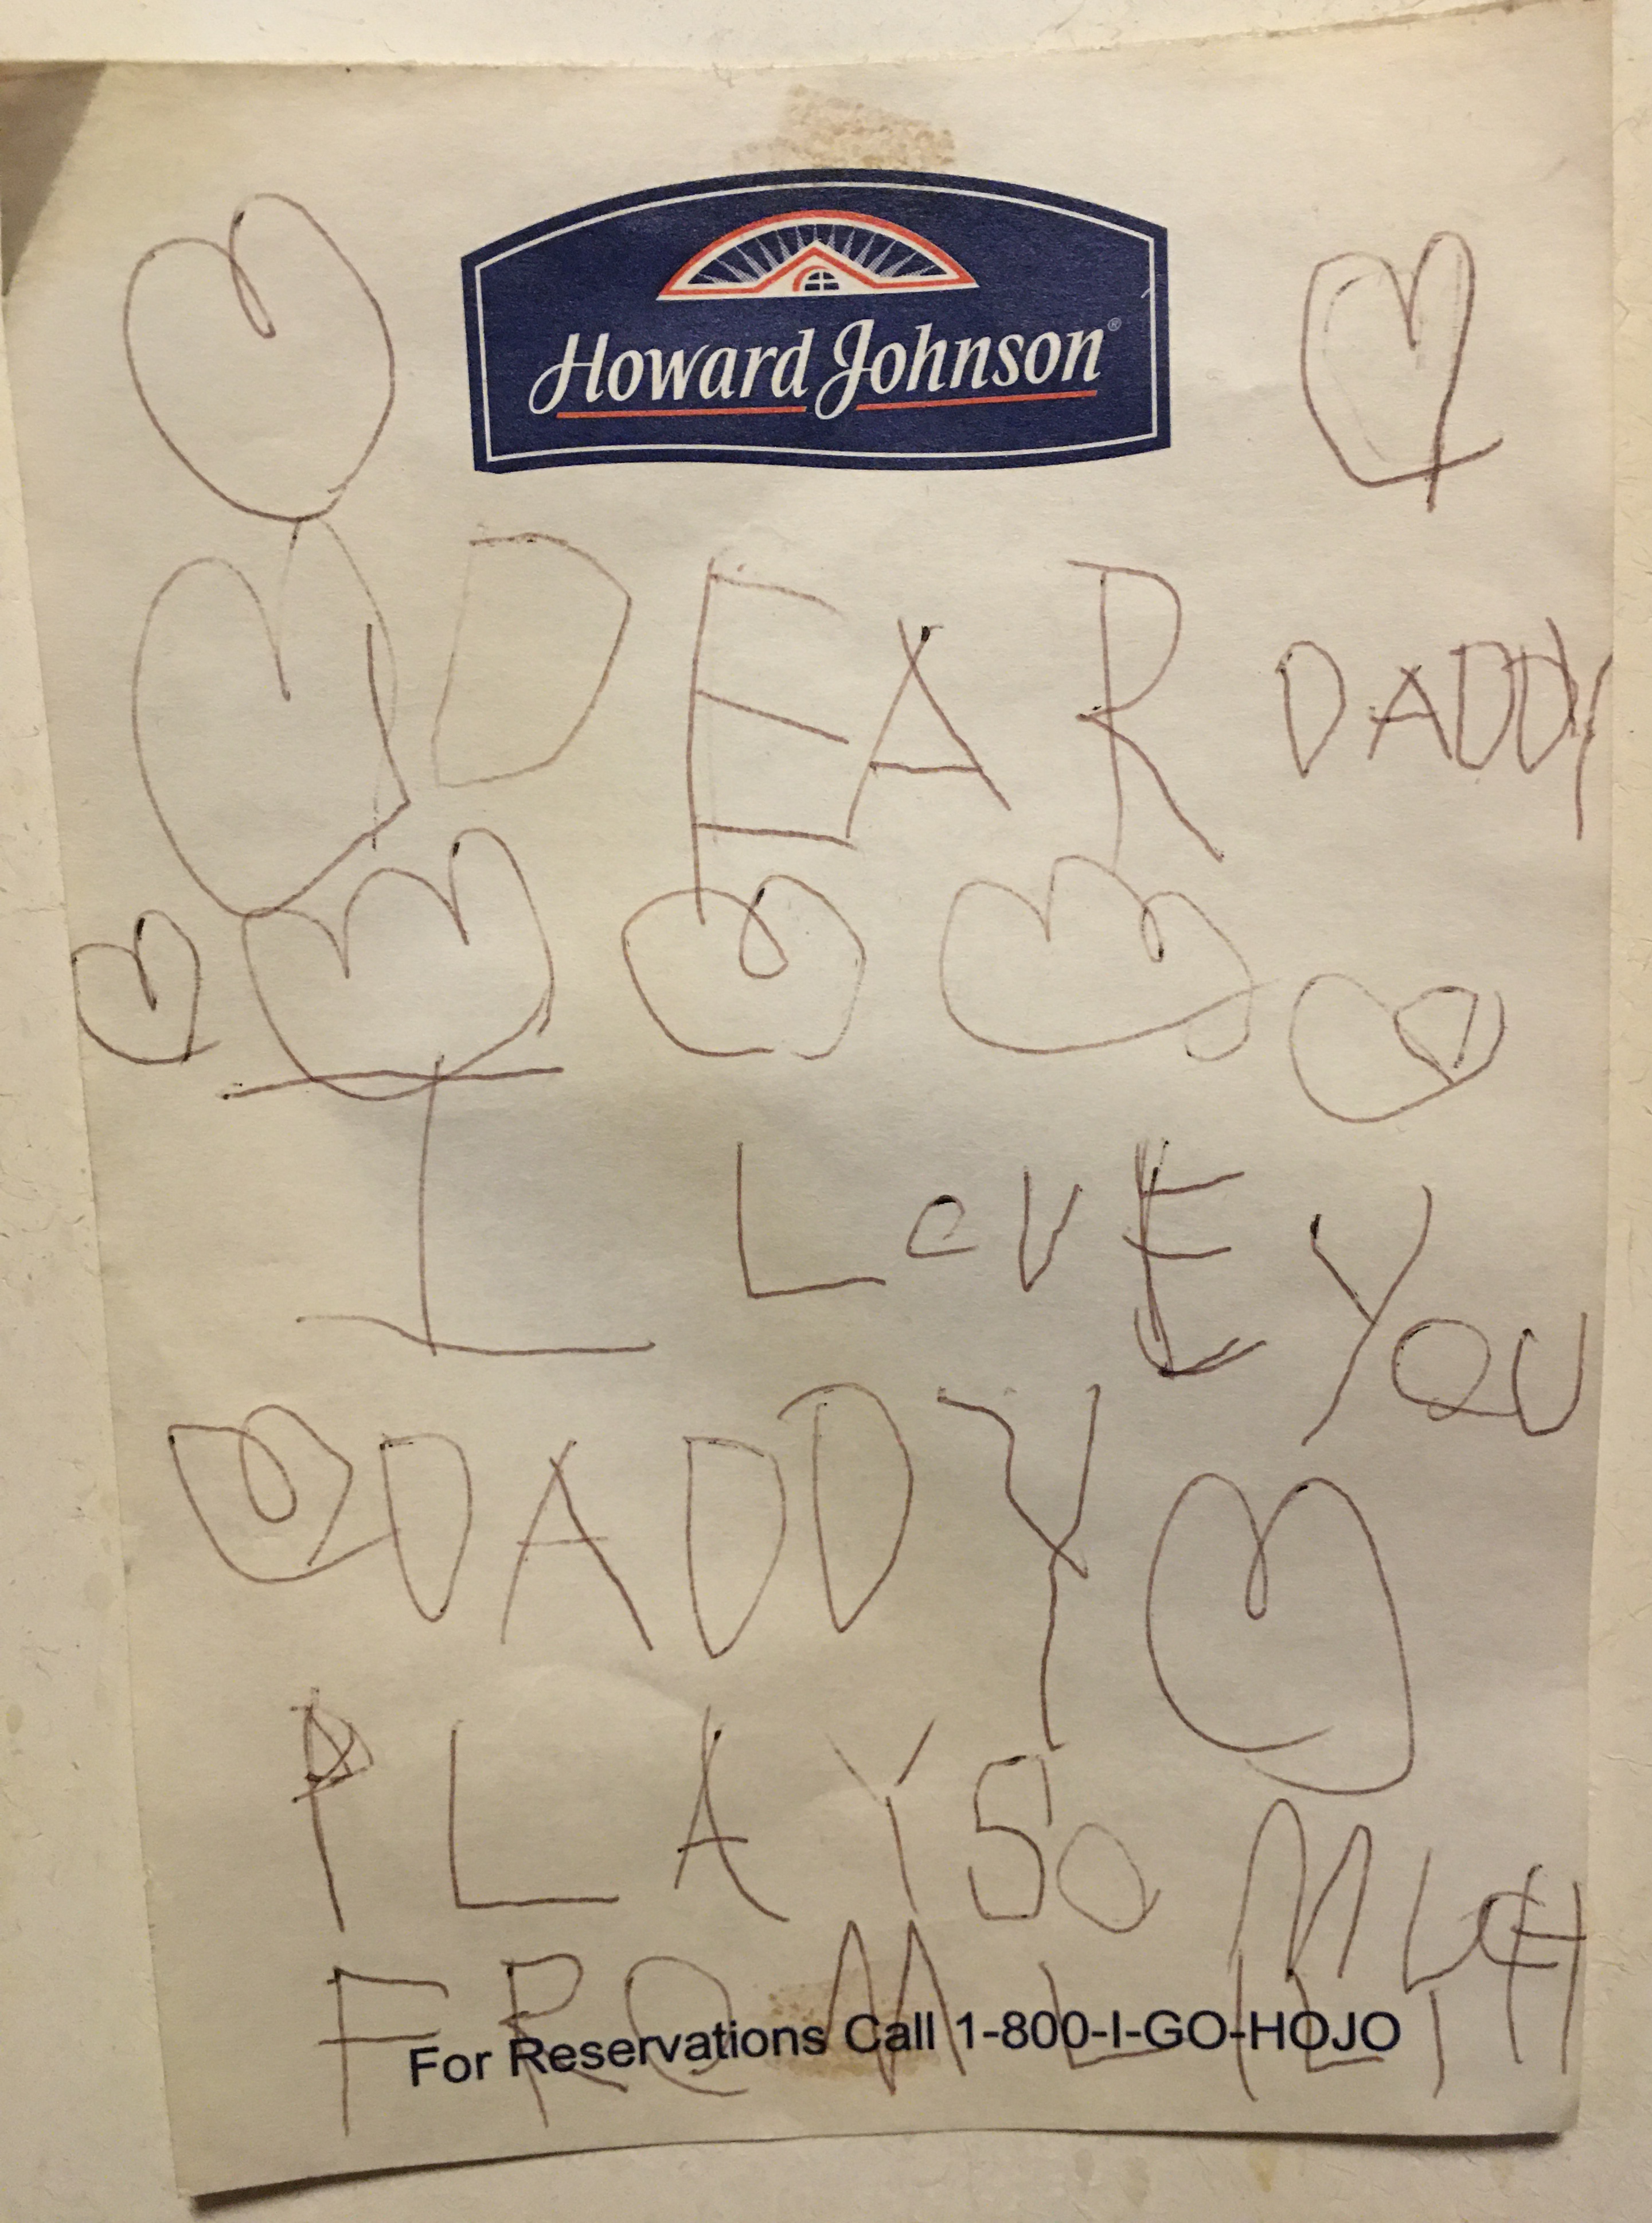 Howard Johnson®
DEAR DADDY
I LOVE YOU
DADDY
PLAY SO MUCH
FROM LILY
For Reservations Call 1-800-I-GO-HOJO